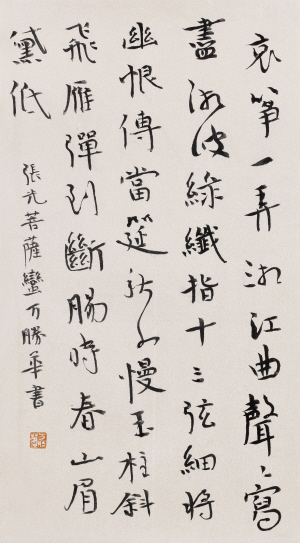 哀箏一弄湘江曲聲〻寫
盡湘波綠纖指十三弦細將
幽恨傳當筵秋水慢玉柱斜
飛雁彈到斷腸時春山眉
黛低
張先菩薩蠻万勝華書